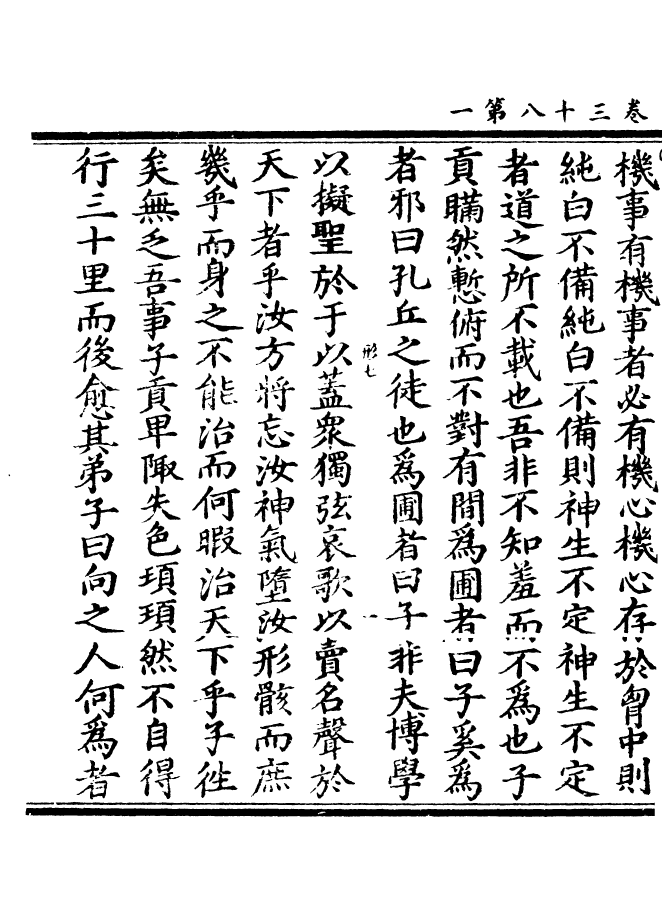 卷三十八第一
機事有機事者必有機心機心存於胷中則
純白不備純白不備則神生不定神生不定
者道之所不載也吾非不知羞而不爲也子
貢瞞然慙俯而不對有間爲圃者曰子奚爲
者邪曰孔丘之徒也爲圃者曰子非夫博學
形七
以擬聖於于以蓋衆獨弦哀歌以賣名聲於
天下者乎汝方將忘汝神氣墮汝形骸而庶
幾乎而身之不能治而何暇治天下乎子徃
矣無乏吾事子貢卑陬失色頊頊然不自得
行三十里而後愈其弟子曰向之人何爲者